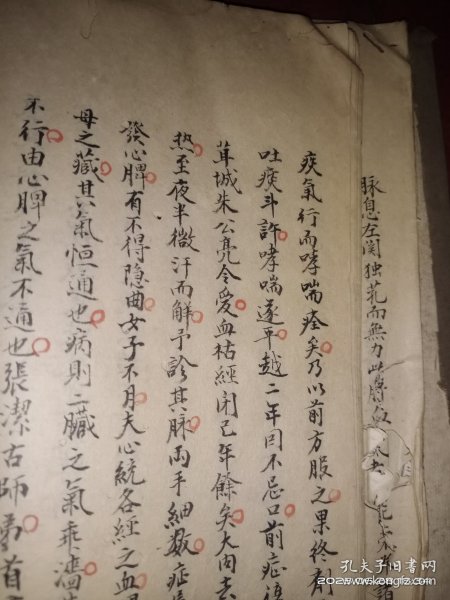 脉息左関独芤而無力此膺血
痰氣行而哮喘痊矣乃以前方服之果終剤
吐痰斗許哮喘遂平越二年因不忌口前症復
茸城朱公亮令愛血枯經闭已年餘矣大肉去
热至夜半微汗而解予診其脉両手細数症
發心脾有不得隐曲女子不月夫心統各經之血
母之藏其氣恒通也病則二臓之氣乖濇
不行由心脾之氣不通也張潔古師弟首
孔夫子旧书网